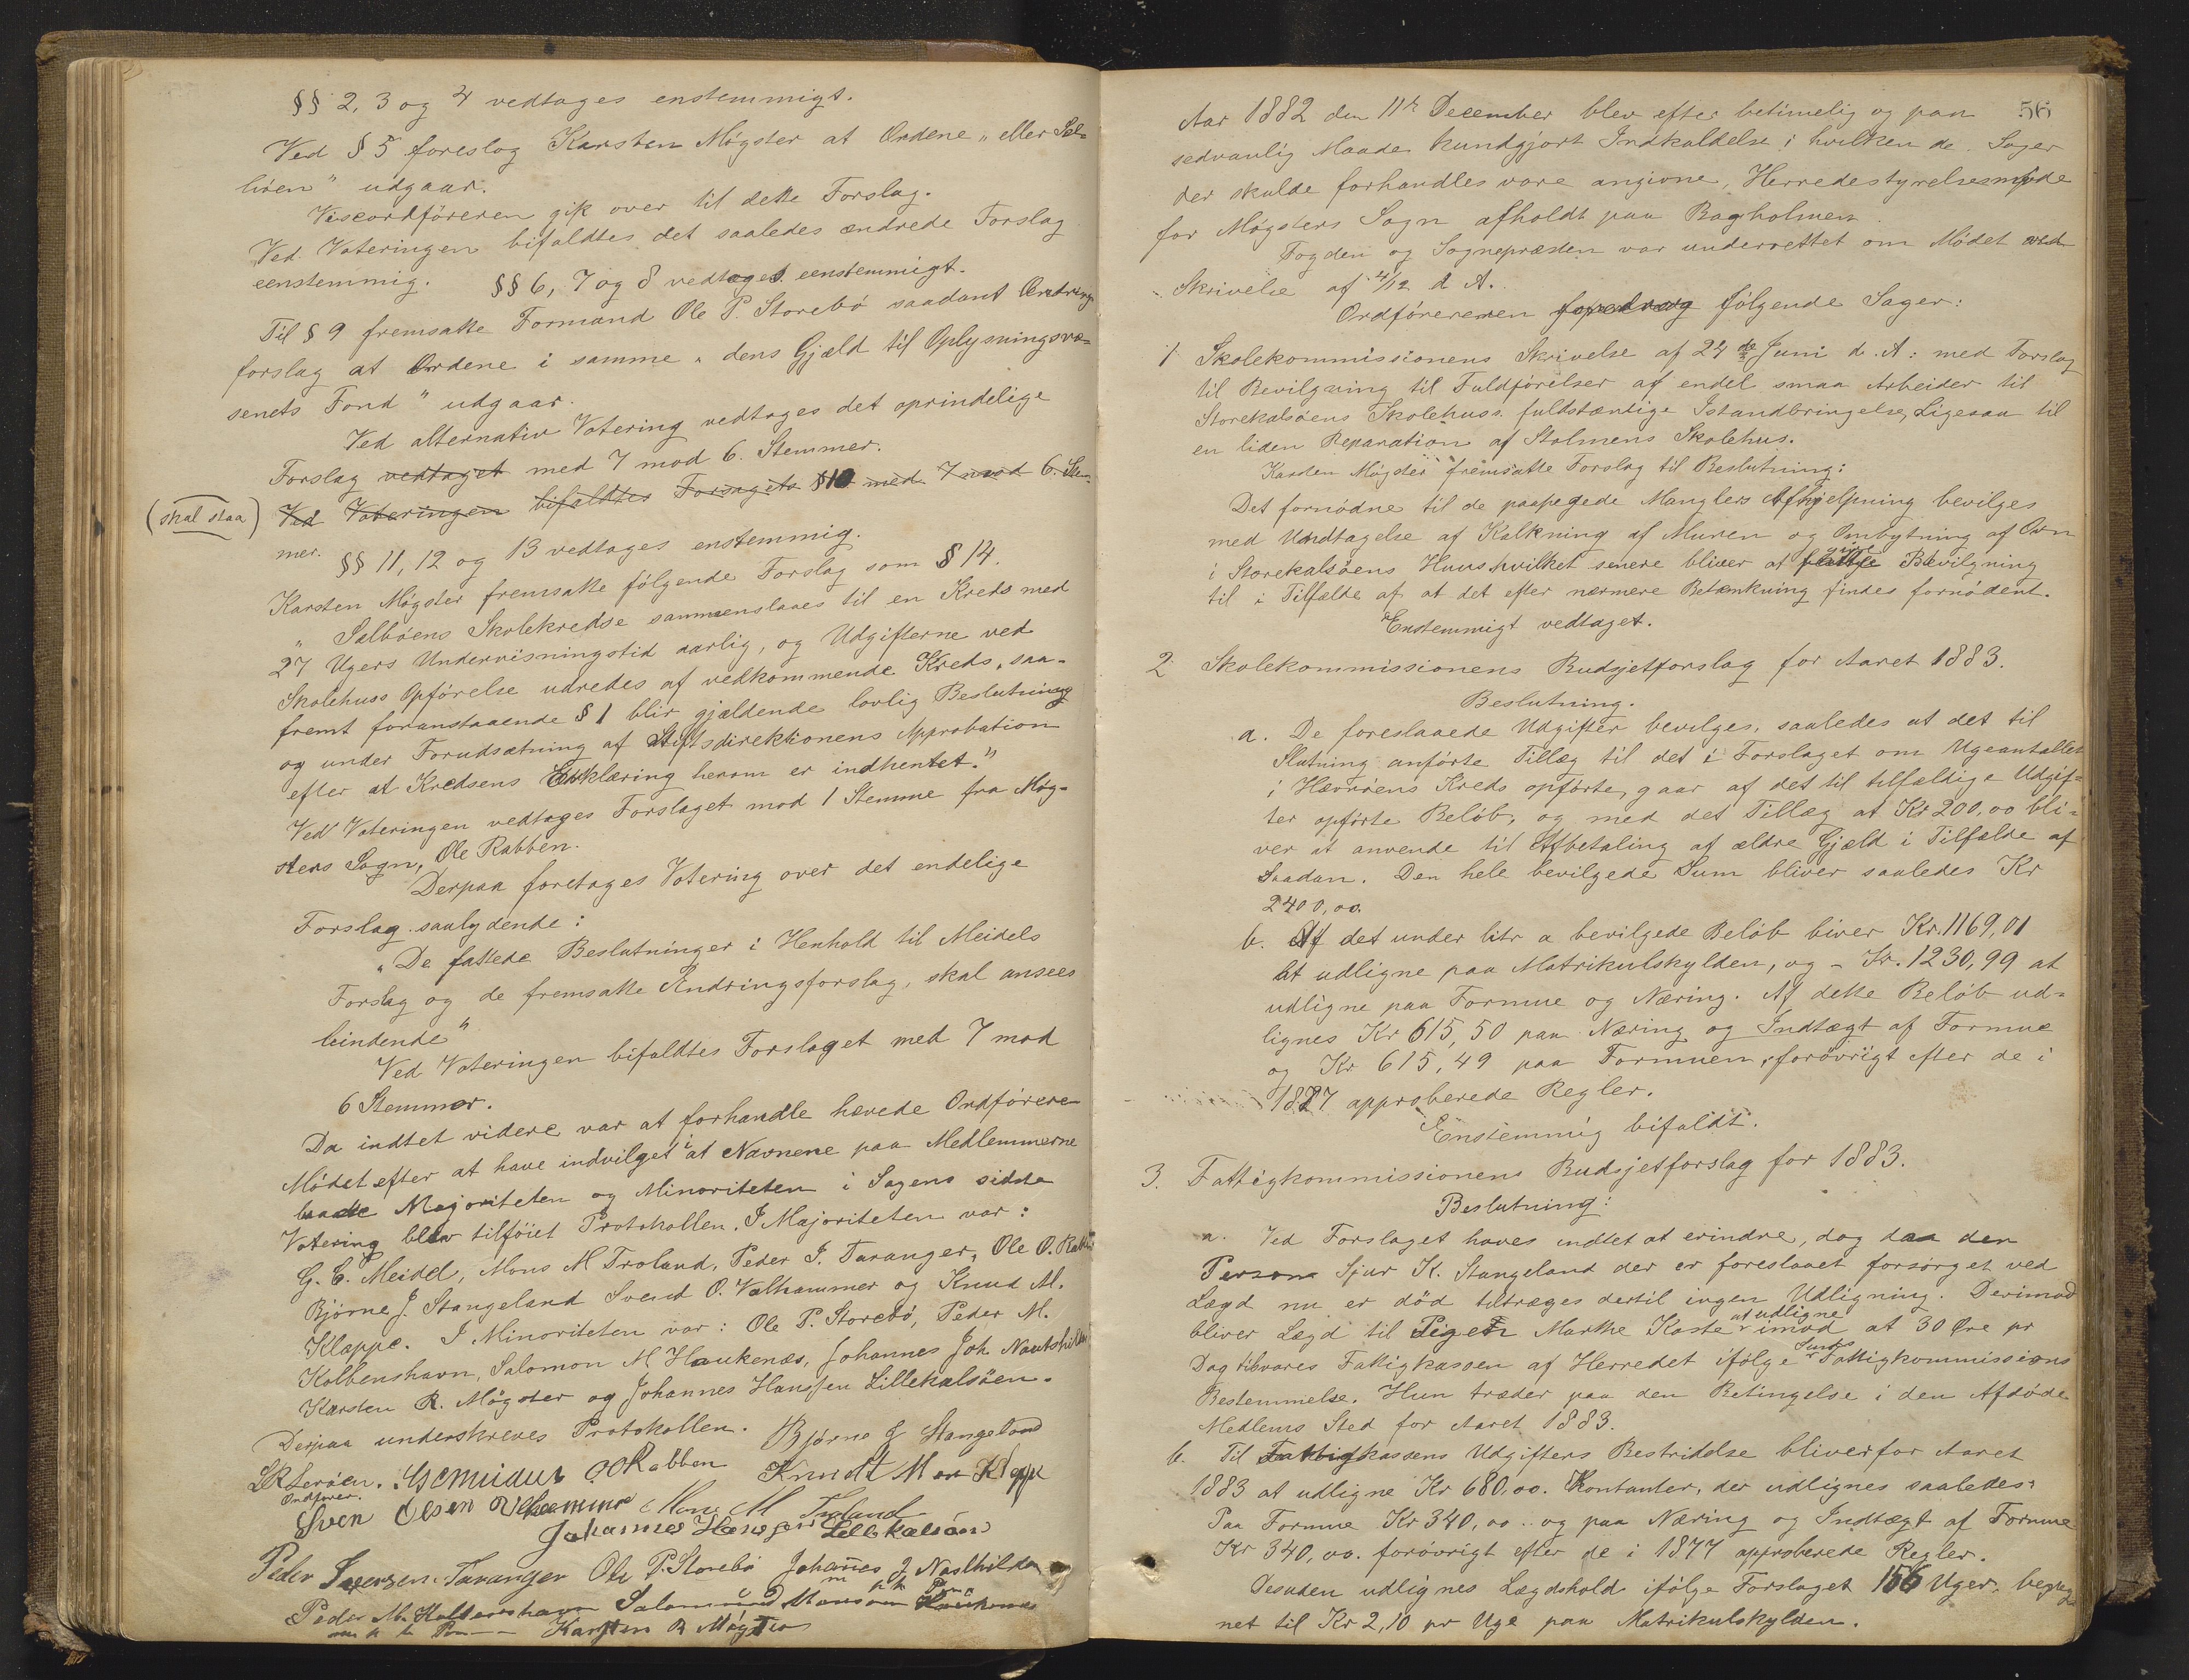 §§ 2, 3 og 4 vedtages enstemmigt.
Ved § 5 foreslog Karsten Møgster at Ordene „eller Sel-
böen" udgaar.
Viseordföreren gik over til dette Forslag.
Ved Voteringen bifaldtes det saaledes ændrede Forslag
eenstemmig. §§ 6, 7 og 8 vedtages eenstemmigt.
Til § 9 fremsatte Formand Ole P. Storebö saadant Ændrings
forslag at Ordene i samme „dens Gjæld til Oplysningsvæ-
senets Fond" udgaar.
Ved alternativ Votering vedtages det oprindelige
Forslag vedtaget med 7 mod 6 Stemmer.
(skal staa) Ved Voteringen bifaldtes Forsagets § 10 med 7 mod 6 Stem-
mer. §§ 11, 12 og 13 vedtages enstemmig.
Karsten Møgster fremsatte fölgende Forslag som § 14.
„Selböens Skolekredse sammenslaaes til en Kreds med
27 Ugers Undervisningstid aarlig, og Udgifterne ved
Skolehuss Opförelse udredes af vedkommende Kreds, saa-
fremt foranstaaende § 1 blir gjældende lovlig Beslutning
og under Forudsætning af Stiftsdirektionens Approbation
efter at Kredsens Erklæring herom er indhentet."
Ved Voteringen vedtages Forslaget mod 1 Stemme fra Møg-
sters Sogn, Ole Rabben.
Derpaa foretages Votering over det endelige
Forslag saalydende:
„De fattede Beslutninger i Henhold til Meidels
Forslag og de fremsatte Ændringsforslag, skal ansees
bindende"
Ved Voteringen bifaldtes Forslaget med 7 mod
6 Stemmer.
Da indtet videre var at forhandle hævede Ordförere
Mödet efter at have indvilget i at Navnene paa Medlemmerne
baade Majoriteten og Minoriteten i Sagens sidste
Votering blev tilföiet Protokollen. I Majoriteten var:
G. C. Meidel, Mons M Troland, Peder I. Taranger, Ole O. Rabben
Bjørne J. Stangeland Svend O. Valhammer og Knud M.
Klappe. I Minoriteten var: Ole P. Storebö, Peder M.
Kolbenshavn, Salomon M Haukenæs, Johannes Joh. Navtshilder
Karsten R. Møgster og Johannes Hanssen Lillekalsöen.
Derpaa underskreves Protokollen. Bjørne J Stangeland
L R Leröen. G C Meidell O O Rabben Knudt M Klappe
Ordförer.
Sven Olsen Valhammer Mons M Troland
Johannes Hansen Lillekalsöen
Peder Iversen Taranger Ole P. Storebö Johannes J Nasthilder
m p P
Peder M. Kolbenshavn Salomond Monsen Haukenæs
m p P Karsten R Møgster
56
Aar 1882 den 11te December blev efter betimelig og paa
sedvanlig Maade kundgjort Indkaldelse i hvilken de Sager
der skulde forhandles vare angivne, Herredestyrelsesmøde
for Møgsters Sogn afholdt paa Bagholmen.
Fogden og Sognepræsten var underrettet om Mödet ved
Skrivelse af 4/12 d. A.
Ordföreren foredrog fölgende Sager:
1 Skolekommissionens Skrivelse af 24de Juni d. A: med Forslag
til Bevilgning til Fuldförelser af endel smaa Arbeider til
Storekalsöens Skolehuss fuldstændige Istandbringelse, Ligesaa til
en liden Reparation af Stolmens Skolehus.
Karsten Møgster fremsatte Forslag til Beslutning:
Det fornödne til de paapegede Manglers Afhjelpning bevilges
med Undtagelse af Kalkning af Muren og Ombytning af Ovn
i Storekalsöens Huus hvilket senere bliver at give Bevilgning
til i Tilfælde af at det efter nærmere Betænkning findes fornödent.
Enstemmigt vedtaget.
2 Skolekommissionens Budsjetforslag for Aaret 1883.
Beslutning.
a. De foreslaaede Udgifter bevilges, saaledes at det til
Slutning anförte Tillæg til det i Forslaget om Ugeantallet
i Hævröens Kreds opförte, gaar af det til tilfældige Udgif-
ter opförte Belöb, og med det Tillæg at Kr 200,00 bli-
ver at anvende til Afbetaling af ældre Gjæld i Tilfælde af
Saadan. Den hele bevilgede Sum bliver saaledes Kr
2400,00.
b. Af det under litr a bevilgede Belöb bliver Kr. 1169,01
at udligne paa Matrikulskylden, og - Kr. 1230,99 at
udligne paa Formue og Næring. Af dette Belöb ud-
lignes Kr 615,50 paa Næring og Indtægt af Formue
og Kr 615,49 paa Formuen, forövrigt efter de i
1877 approberede Regler.
Enstemmig bifaldt.
3. Fattigkommissionens Budsjetforslag for 1883.
Beslutning:
a. Ved Forslaget haves indtet at erindre, dog daa den
Person Sjur K. Stangeland der er foreslaaet forsörget ved
Lægd nu er död tiltræges dertil ingen Udligning. Derimod
bliver Lægd til Pigen Marthe Kaste at udligne imod at 30 Øre pr
Dag tilsvares Fattigkassen af Herredet ifölge Sunds Fattigkommissions
Bestemmelse. Hun træder paa den Betingelse i den Afdöde
Medlems Sted for Aaret 1883.
b. Til Fattigkassens Udgifters Bestridelse bliver for Aaret
1883 at udligne Kr 680,00. Kontanter, der udlignes saaledes:
Paa Formue Kr 340,00 .. og paa Næring og Indtægt af Formue
Kr 340,00. forövrigt efter de i 1877 approberede Regler.
Desuden udlignes Lægdshold ifölge Forslaget 156 Uger, bereg
net til Kr 2,10 pr Uge paa Matrikulskylden.